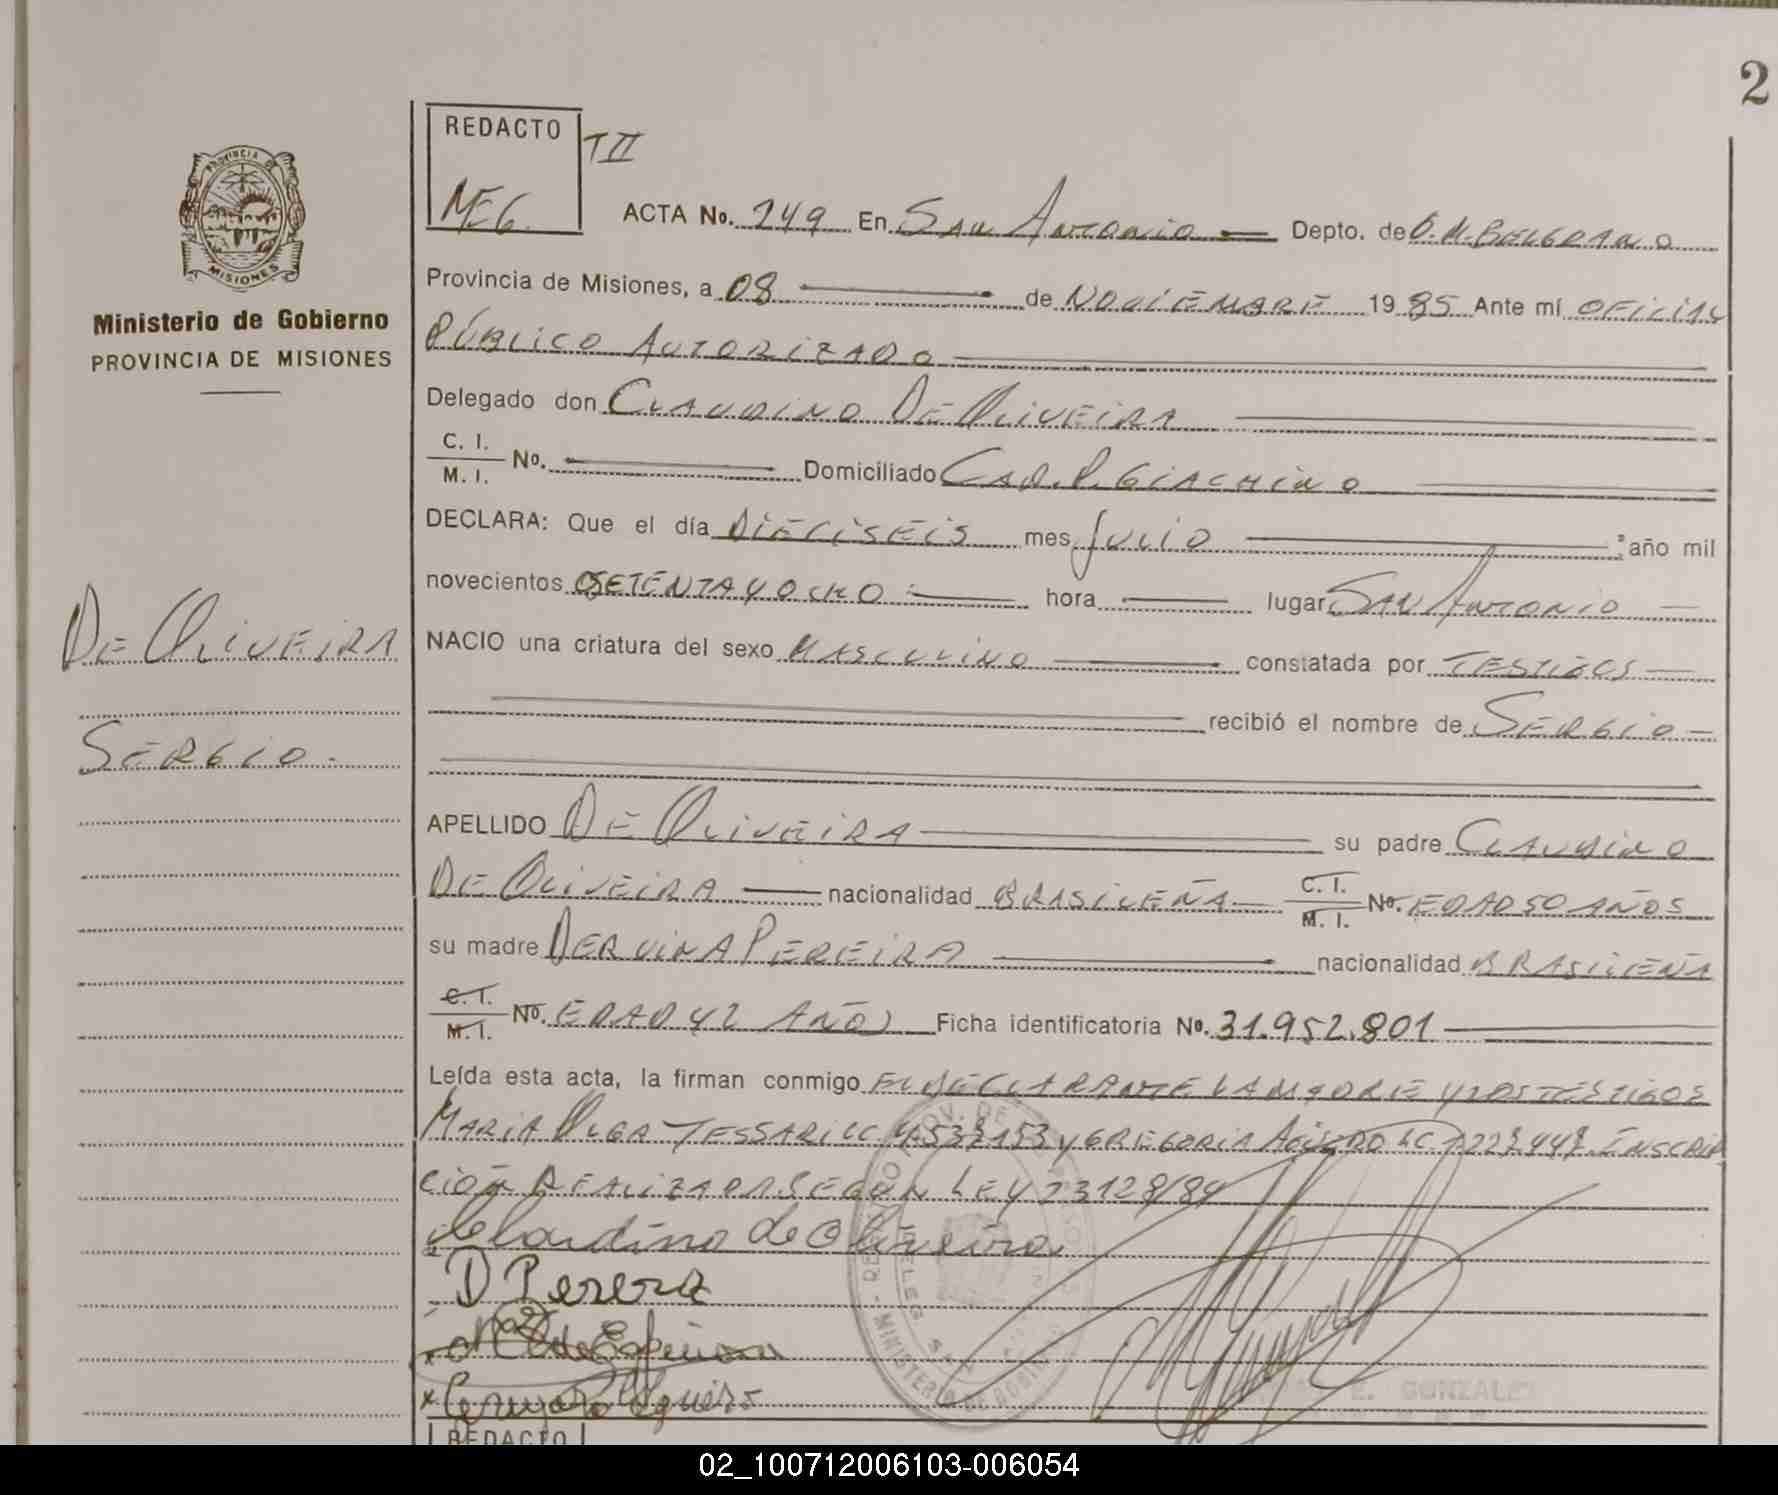 2
REDACTO
T II
MEG.
PROVINCIA DE
MISIONES
Ministerio de Gobierno
PROVINCIA DE MISIONES
DE OLIVEIRA
SERGIO.-
ACTA No. 249 En SAN ANTONIO Depto. de G. M. BELGRANO
Provincia de Misiones, a 08 de NOVIEMBRE 1985 Ante mí OFICIAL
PÚBLICO AUTORIZADO
Delegado don CLAUDINO DE OLIVEIRA
C. I.
M. I. No. Domiciliado CAP. P. GIACHINO
DECLARA: Que el día DIECISEIS mes JULIO año mil
novecientos SETENTA Y OCHO hora lugar SAN ANTONIO
NACIO una criatura del sexo MASCULINO constatada por TESTIGOS
recibió el nombre de SERGIO
APELLIDO DE OLIVEIRA su padre CLAUDINO
DE OLIVEIRA nacionalidad BRASILEÑA C. I. M. I. No. EDAD 50 AÑOS
su madre DERVINA PEREIRA nacionalidad BRASILEÑA
C. I. M. I. No. EDAD 42 AÑOS Ficha identificatoria No. 31.952.801
Leída esta acta, la firman conmigo EL DECLARANTE LA MADRE Y LOS TESTIGOS
MARIA OLGA TESSARI LC 4.533.153 Y GREGORIA LC. INSCRIP
CIÓN REALIZADA SEGÚN LEY 23128/84
de Oliveira
D Perera
E. GONZALEZ
REDACTO
02_100712006103-006054